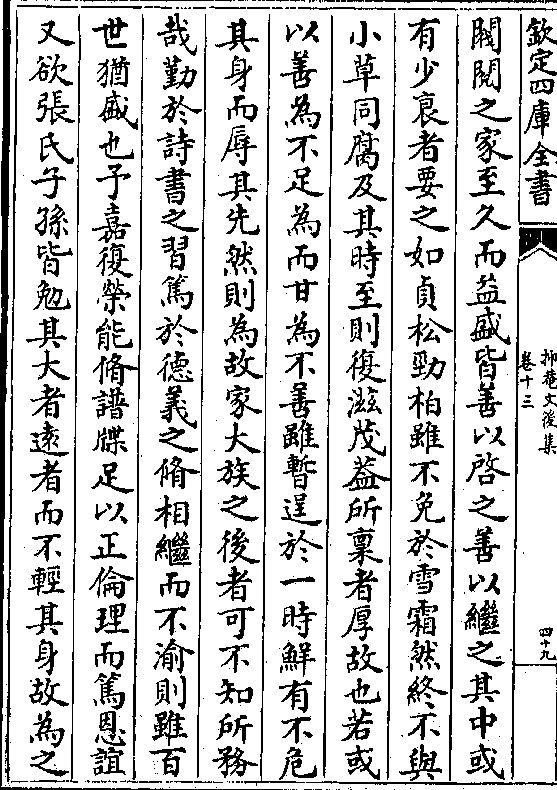 欽定四庫全書
抑菴文後集
卷十三
四十九
閥閱之家至久而益盛皆善以啓之善以繼之其中或
有少衰者要之如貞松勁柏雖不免於雪霜然終不與
小草同腐及其時至則復滋茂葢所禀者厚故也若或
以善為不足為而甘為不善雖暫逞於一時鮮有不危
其身而辱其先然則為故家大族之後者可不知所務
哉勤於詩書之習篤於德義之脩相繼而不渝則雖百
世猶盛也予嘉復榮能脩譜牒足以正倫理而篤恩誼
又欲張氏子孫皆勉其大者遠者而不輕其身故為之